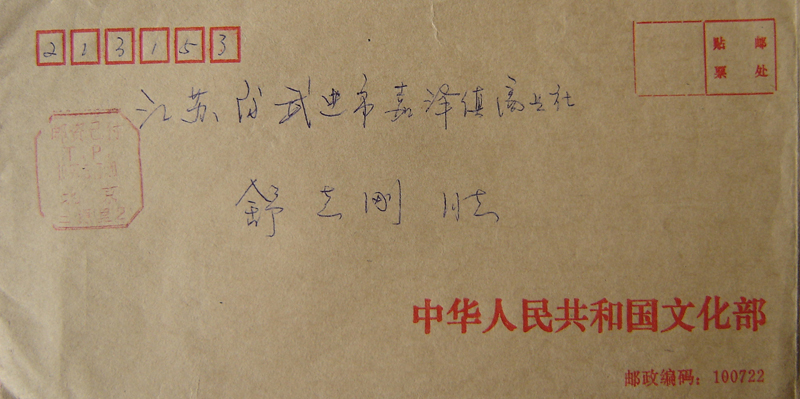 213153
贴 邮
票 处
江苏省武进市嘉泽镇
舒志刚
北京
中华人民共和国文化部
邮政编码：100722